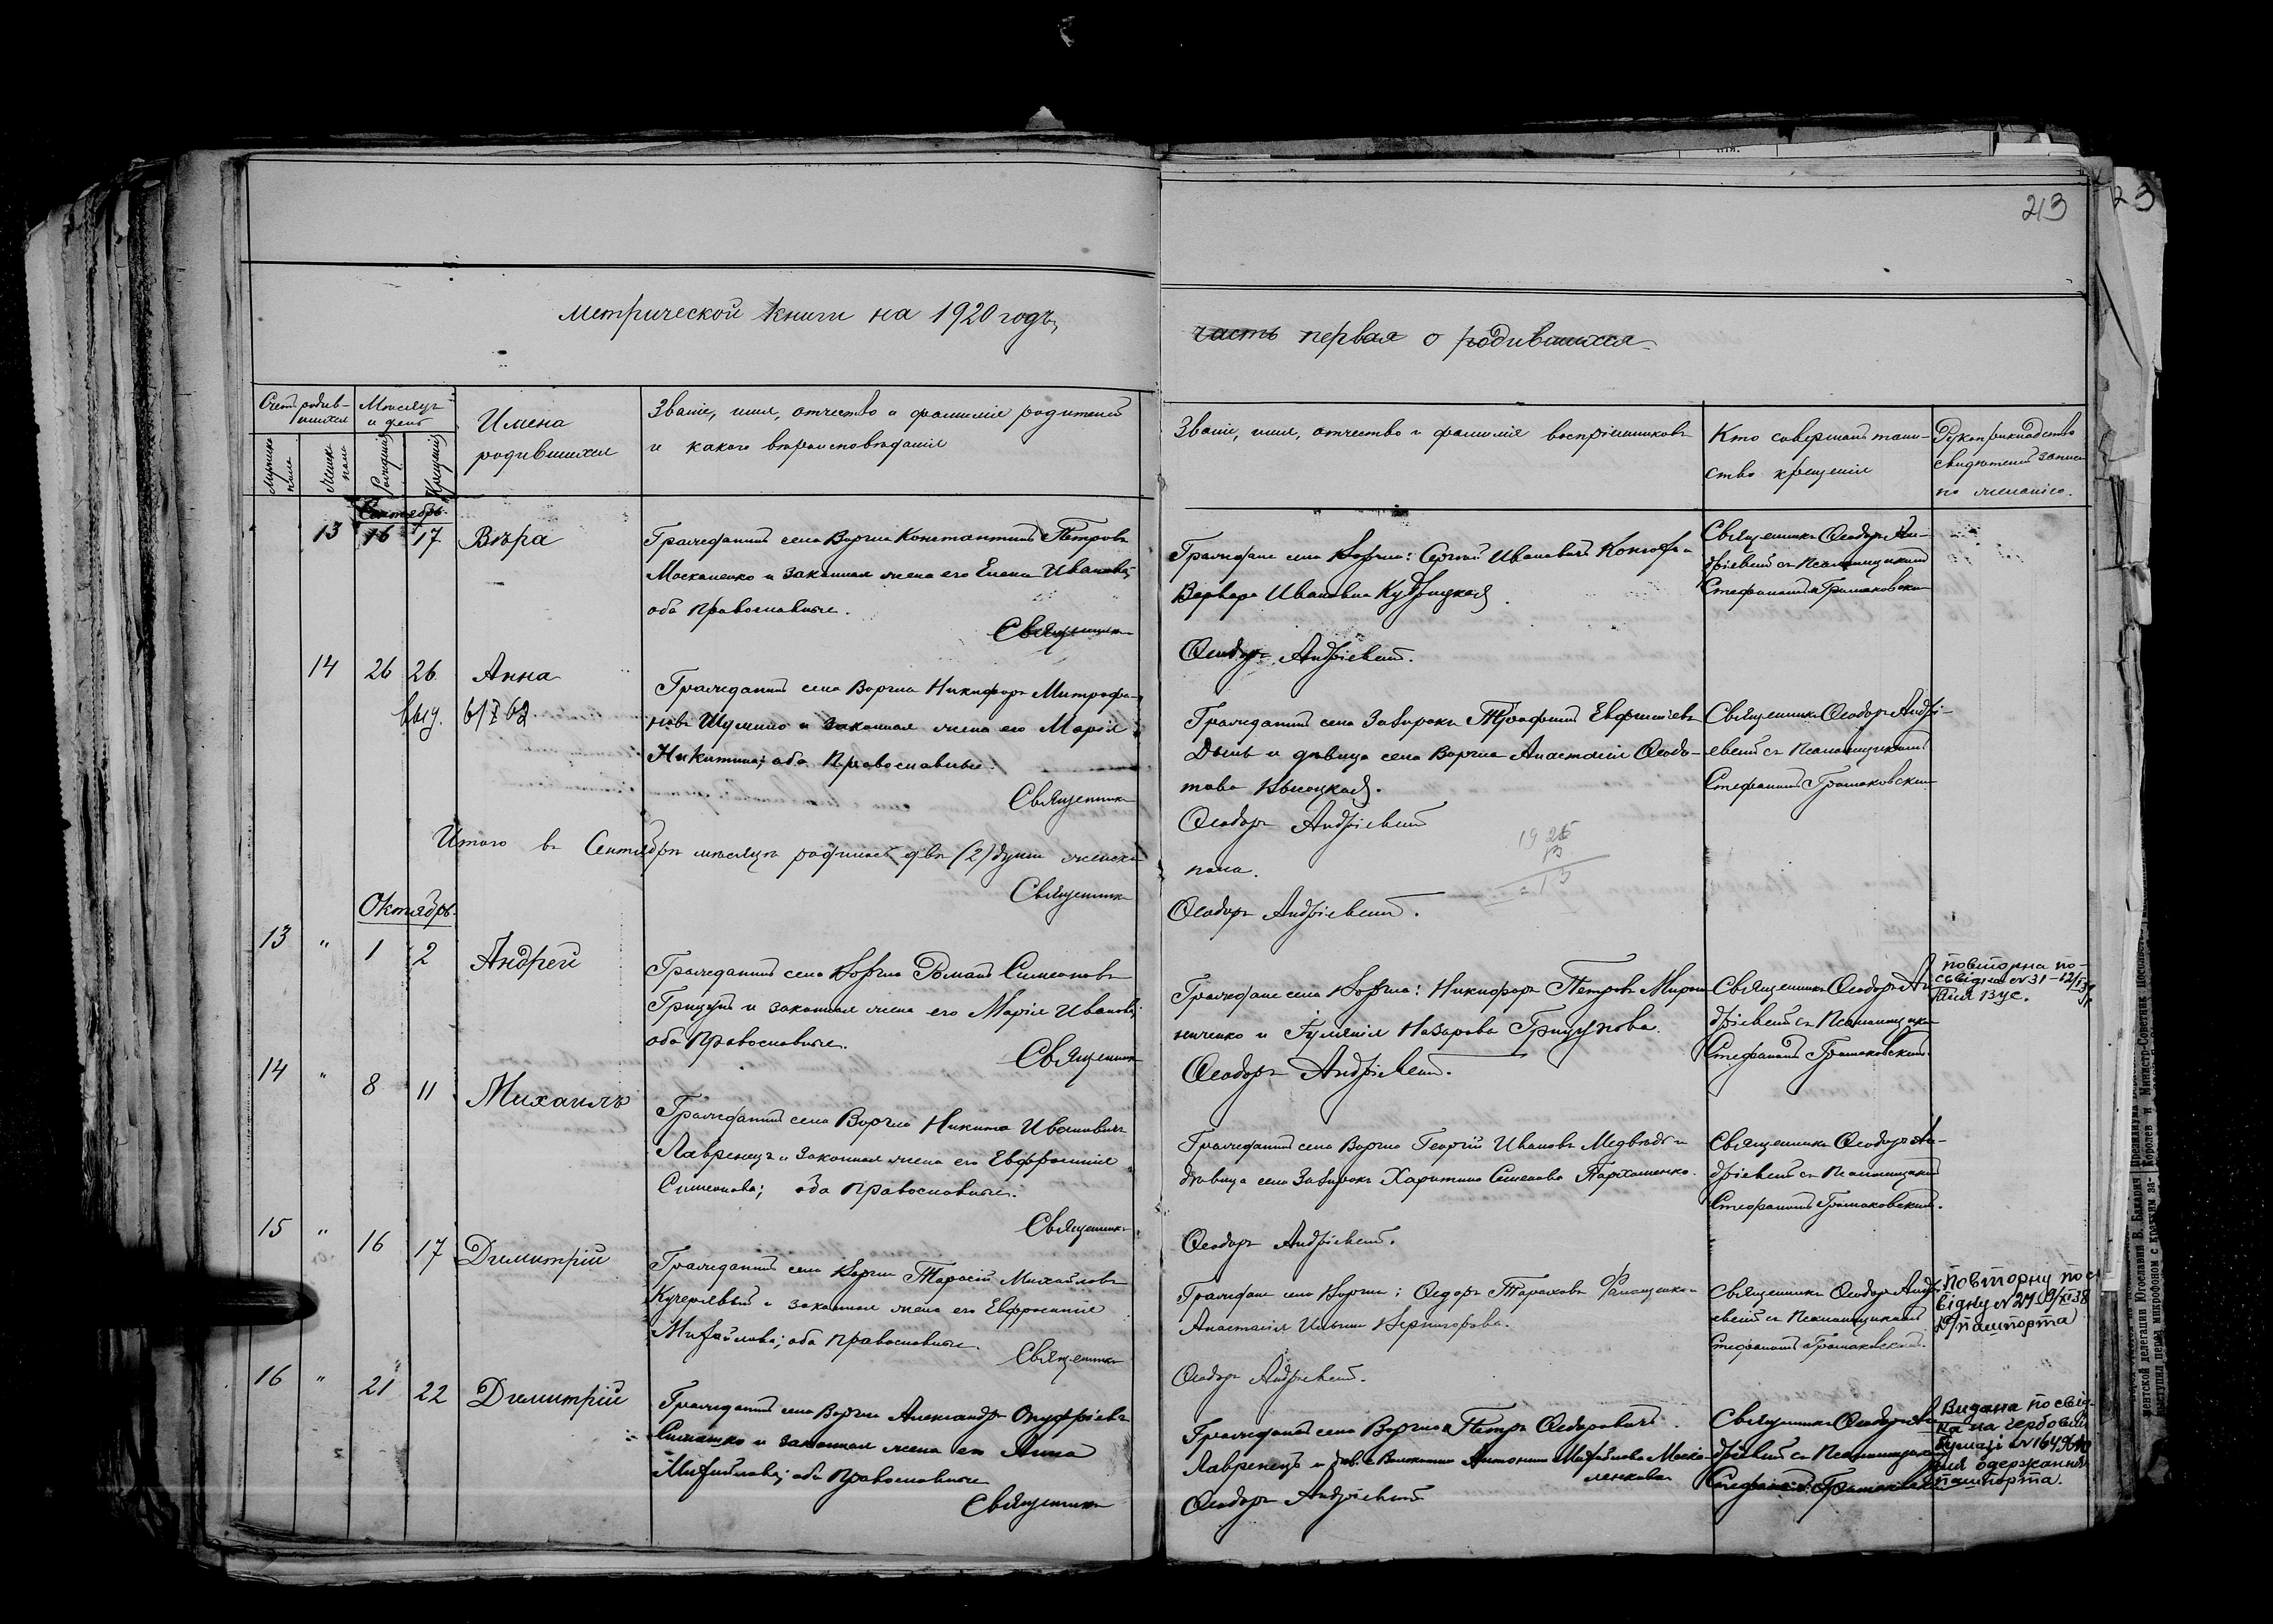 213
23
метрической книги на 1920 годъ,
часть первая о родившихся
Счетъ родив-
шихся
Мужска
пола
Женск
пола
Мѣсяцъ
и день
Рожденія
Крещенія
Имена
родившихся
Званіе, имя, отчество и фамилія родителей
и какого вѣроисповѣданія
Званіе, имя, отчество и фамилія воспріемниковъ
Кто совершалъ таин-
ство крещенія
Рукоприкладство
свидѣтелей записи
по желанію.
Сентябрь
13 16 17 Вѣра
Гражданинъ села Воргла Константинъ Петровъ
Москаленко и законная жена его Елена Иванова,
оба Православные.
Священникъ
Граждане села Воргла: Сергѣй Ивановичъ и
Варвара Ивановна Кудрицкая.
Ѳеодоръ Андріевскій.
Священникъ Ѳеодоръ Ан-
дріевскій съ Псаломщикомъ
Стефаномъ Громаковскимъ
14 26 26 Анна
выд. 6/I 62
Гражданинъ села Воргла Никифоръ Митрофа-
новъ Шумило и законная жена его Марія
Никитина; оба Православные.
Священникъ
Гражданинъ села Заѣирокъ Трофимъ Евфиміевъ
и дѣвица села Воргла Анастасія Ѳеодо-
това Высоцкая.
Ѳеодоръ Андріевскій
Священникъ Ѳеодоръ Андрі-
евскій съ Псаломщикомъ
Стефаномъ Громаковскимъ
Итого въ Сентябрѣ мѣсяцѣ родилось двѣ (2) души женска
пола.
Священникъ
Ѳеодоръ Андріевскій.
19 25
13
Октябрь
13 " 1 2 Андрей
Гражданинъ села Воргла Романъ Симеоновъ
Грицунъ и законная жена его Марія Иванова;
оба Православные.
Священникъ
Граждане села Воргла: Никифоръ Петровъ Мирош
ниченко и Гуліянія Назарова Грицунова.
Ѳеодоръ Андріевскій.
Священникъ Ѳеодоръ Ан
дріевскій съ Псаломщикомъ
Стефаномъ Громаковскимъ.
повторна по-
свідка №31-12/I 39
14 " 8 11 Михаилъ
Гражданинъ села Воргла Никита Ивановичъ
Лавренецъ и законная жена его Евфросинія
Симеонова; оба Православные.
Священникъ
Гражданинъ села Воргла Георгій Ивановъ Медвѣдь и
дѣвица села Заѣирокъ Харитина Семенова Пархоменко.
Ѳеодоръ Андріевскій.
Священникъ Ѳеодоръ Ан-
дріевскій съ Псаломщикомъ
Стефаномъ Громаковскимъ.
15 " 16 17 Димитрій
Гражданинъ села Воргла Тарасій Михайловъ
Кучерявый и законная жена его Евфросинія
Михайлова; оба православные.
Священникъ
Граждане села Воргла: Ѳедоръ Тарасовъ и
Анастасія Ильина
Ѳеодоръ Андріевскій.
Священникъ Ѳеодоръ Андрі
евскій съ Псаломщикомъ
Стефаномъ Громаковскимъ.
Повторну пос-
відку №27 9/XI 38
д/пашпорта
16 " 21 22 Димитрій
Гражданинъ села Воргла Александръ Онуфріевъ
Симашко и законная жена его Анна
Михайлова; оба Православные
Священникъ
Гражданинъ села Воргла Петръ Ѳедоровичъ
Лавренецъ и Антонина Михайлова Моска
ленкова
Ѳеодоръ Андріевскій
Священникъ Ѳеодоръ Ан
дріевскій съ Псаломщикомъ
Стефаномъ Громаковскимъ.
Видана посвід-
ка на гербовій
бумазі №
для одержання
пашпорта.